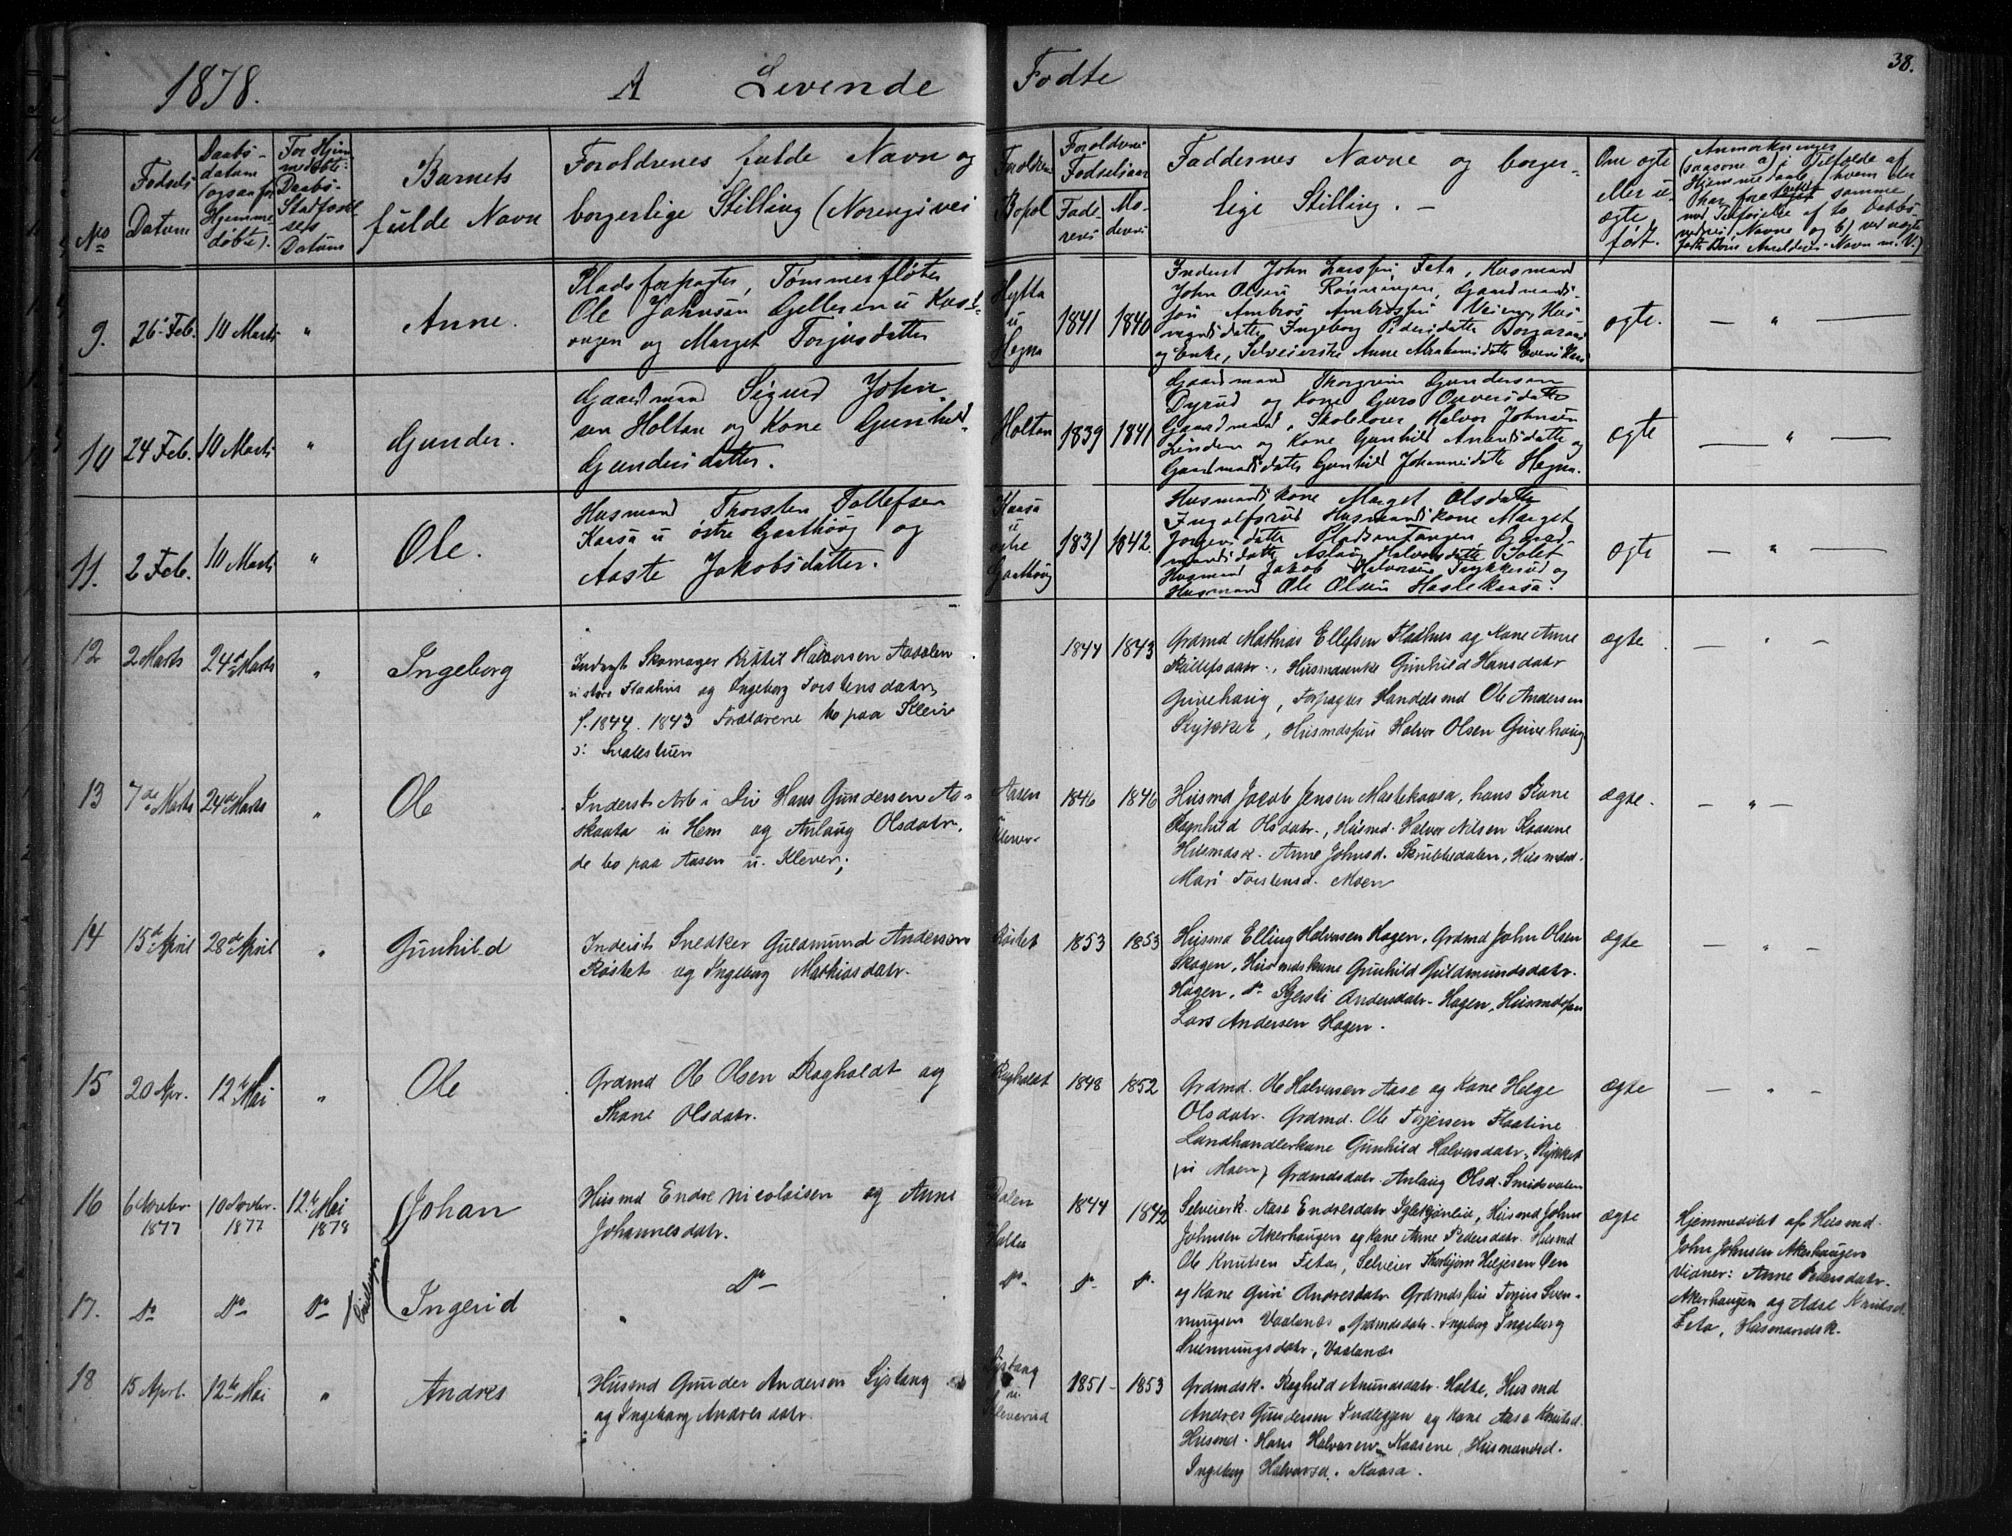 1878. A Levende Fødte 38.
No
Fødsels
Datum
Daabs-
datum
(ogsaa for
Hjemme
døbte).
For Hjem
medøbte:
Daabs-
Stadfæstel
ses
Datum
Barnets
fulde Navn
Forældrenes fulde Navn og
borgerlige Stilling
Forældre
Bopæl
Forældrenes
Fødselsaar
Fade-
rens
Mo-
derens
Faddernes Navne og borger-
lige Stilling. -
Om ægte
eller u-
ægte
født.
Anmærkninger
9. 26 Feb. 10 Marts " Anne.
Pladsforpagter, Tømmerfløter
Ole Johnsen Gjelleren u
og Marget Torjusdatter
Hytta
u
Hegna
1841 1840
Inderst John Larssen Feta, Husmand
John Olsen Rønningen, Gaardmands-
søn Ambros Ambrossen
Ingeborg Pedersdatter
og Enke, Selveierske Anne Abrahamsdatter
ægte. - " -
10 24 Feb. 10 Marts " Gunder.
Gaardmand Sigurd John-
sen Holtan og Kone Gunhild
Gundersdatter.
Holtan 1839 1841
Gaardmand Thorgrim Gundersen
Dyrud og Kone Guro Olversdatter
Gaardmand, Skolelærer Halvor Johnsen
Linden og Kone Gunhild Amundsdatter og
Gaardmandsdatter Gunhild Johannesdatter Hegna.
ægte - " -
11. 2 Feb. 10 Marts " Ole.
Husmand Thorsten Tollefsen
Kaasa u østre Gaathaug og
Aaste Jakobsdatter.
Kaasa
u
østre
Gaathaug
1831 1842.
Husmandskone Marget Olsdatter
Ingolfsrud Husmandskone Marget
Jørgensdatter Gaard-
mandsdatter Aslaug Halvorsdatter
Husmand Jakob Halvorsen Trykkerud og
Husmand Ole Olsen Haslekaasa.
ægte - " -
12 2 Marts 24de Marts " Ingeborg
Inderst Skomager Kittil Halvorsen Aadalen
u store Flaahus og Ingeborg Torstensdatr.
f. 1844. 1843 Forældrene bo paa Kleiv
1844 1843
Grdmd Mathias Ellefsen Flaahus og Kone Anne
Husmdsenke Gunhild Hansdatr
Guvehaug, Forpagter Handelsmd Ole Andersen
Stykket, Husmdssøn Halvor Olsen Guvehaug
ægte - " -
13 7de Marts 24de Marts " Ole
Inderst Arb i Lie Hans Gundersen Aa-
skaata u Hem og Anlaug Olsdatr,
de bo paa Aasen u. Klever;
Aasen
u
Klever-
1846 1846
Husmd Jacob Jensen Maslekaasa, hans Kone
Ragnhild Olsdatr., Husmd Halvor Nilsen Kaasene
Husmdsk. Anne Johnsd. Skrubbedalen, Husmdsd.
Mari Torstensd. Moen
ægte. - " -
14 15d April 28d April " Gunhild
Inderst Snedker Guldmund Andersen
Røstet og Ingeborg Mathiasdatr.
Røstet 1853 1853
Husmd Elling Halvorsen Hagen, Grdmd John Olsen
Skogen, Husmdskone Gunhild Guldmundsdatr.
Hagen, do Kjersti Andersdatr. Hagen, Husmdssøn
Lars Andersen Hagen.
ægte - " -
15 20 Apr. 12te Mai " Ole
Grdmd Ole Olsen Ragholdt og
Thone Olsdatr.
Ragholdt 1848 1852
Grdmd. Ole Halvorsen Aase og Kone Helge
Olsdatr. Grdmd. Ole Terjersen Flaatine
Landhandlerkone Gunhild Halvorsdatr. Stykket
(u Moen) Grdmdsdatr Anlaug Olsd. Smedsvalen
ægte - " -
16 6 Novbr. 10 Novbr. 12te Mai Johan
1877 1877 1878
Husmd Endre Nicolaisen og Anne
Johannesdatr.
Dalen
Holtes
1844 1842
Selveierk. Aase Endresdatr, Husmd John
Johnsen Akerhaugen og Kone Anne Pedersdatr. Husmd
Ole Knutsen Feta, Selveier Thorbjørn Heljesen Øen
og Kone Guri Andresdatr Grdmdssøn Torjus Sven-
nungsen Vaalenæs, Grdmdsdatr. Ingeborg Ingeborg
Svennungsdatr, Vaalenæs
ægte
Hjemmedøbt af Husmd.
John Johnsen Akerhaugen
Vidner: Anne Pedersdatr.
Akerhaugen og Aase Knutsd.
Feta, Husmandsk.
17. Do Do Do Tvillinger Ingerid
Do
Do Do Do
18 15 April. 12te Mai " Andres
Husmd Gunder Andersen Lystang
og Ingeborg Andresdatr.
Lystang
u
Kleverud
1851- 1853
Grdmdsk. Raghild Amundsdatr Holte, Husmd
Andres Gundersen Indleggen og Kone Aase Knutsd.
Husmd. Hans Halvorsen Kaasene, Husmandsd.
Ingeborg Halvorsd. Kaasa.